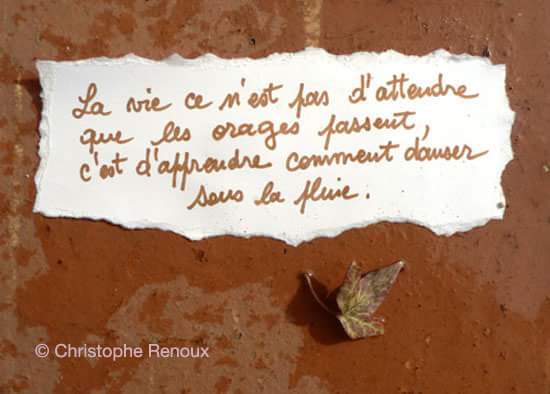 La vie ce n'est pas d'attendre
que les orages passent,
c'est d'apprendre comment danser
sous la pluie.
© Christophe Renoux